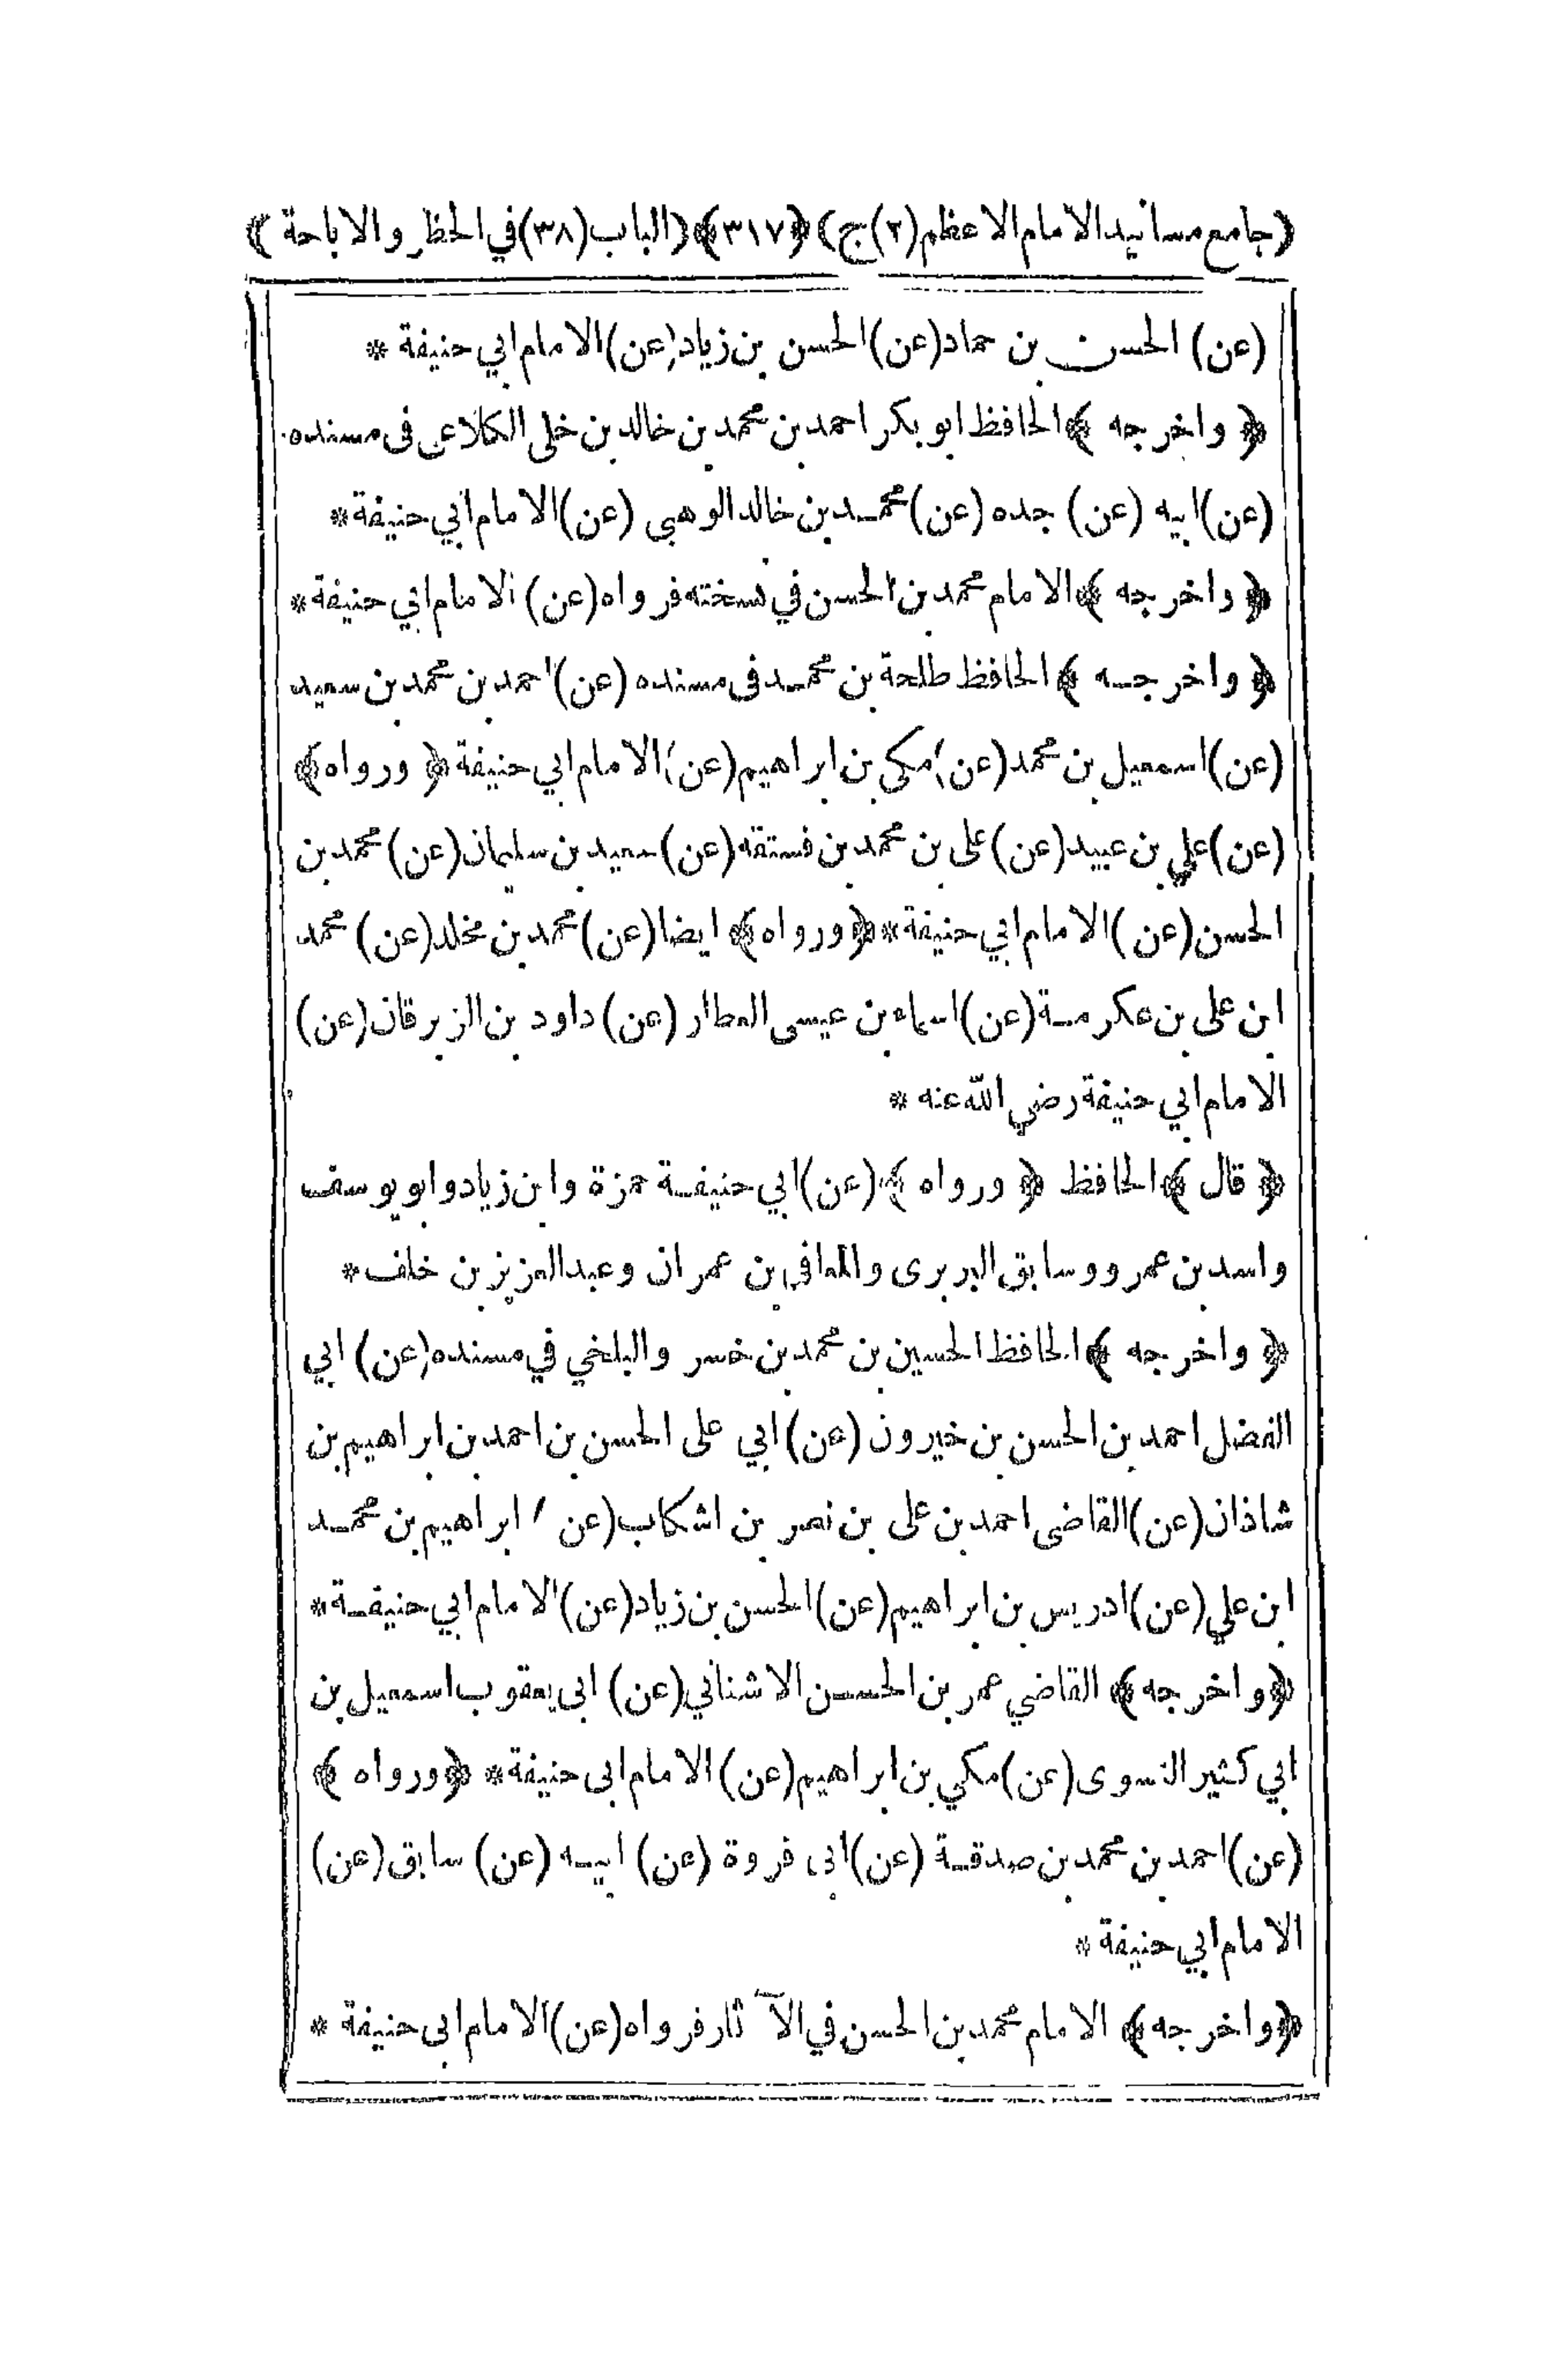 (جامع مسانيد الامام الاعظم (٢) ج) ﴿٣١٧﴾ (الباب (٣٨) في الحظر والاباحة ﴾
(عن) الحسن بن حماد (عن) الحسن بن زياد (عن) الامام ابي حنيفة *
﴿ واخرجه ﴾ الحافظ ابو بكر احمد بن محمد بن خالد بن خلى الكلاعى فى مسنده
(عن) ابيه (عن) جده (عن) محمد بن خالد الوهبى (عن) الامام ابي حنيفة *
﴿ واخرجه ﴾ الامام محمد بن الحسن في نسخته فرواه (عن) الامام ابي حنيفة *
﴿ واخرجه ﴾ الحافظ طلحة بن محمد فى مسنده (عن) احمد بن محمد بن سعيد
(عن) اسمعيل بن محمد (عن) مكى بن ابراهيم (عن) الامام ابي حنيفة ﴿ ورواه ﴾
(عن) علي بن عبيد (عن) على بن محمد بن فستقه (عن) سعيد بن سليمان (عن) محمد بن
الحسن (عن) الامام ابي حنيفة * ﴿ورواه﴾ ايضا (عن) محمد بن مخلد (عن) محمد
ابن على بن عكرمة (عن) اسماه بن عيسى العطار (عن) داود بن الزبرقان (عن)
الامام ابي حنيفة رضي الله عنه *
﴿ قال ﴾ الحافظ ﴿ ورواه ﴾ (عن) ابي حنيفة حمزة وابن زياد وابو يوسف
واسد بن عمرو وسابق البربرى والمعافى بن عمران وعبد العزيز بن خلف *
﴿ واخرجه ﴾ الحافظ الحسين بن محمد بن خسرو البلخي في مسنده (عن) ابي
الفضل احمد بن الحسن بن خيرون (عن) ابي على الحسن بن احمد بن ابراهيم بن
شاذان (عن) القاضى احمد بن على بن نصر بن اشكاب (عن) ابراهيم بن محمد
ابن علي (عن) ادريس بن ابراهيم (عن) الحسن بن زياد (عن) الامام ابي حنيفة *
﴿واخرجه﴾ القاضي عمر بن الحسن الاشناني (عن) ابى يعقوب اسمعيل بن
ابي كثير النسوى (عن) مكي بن ابراهيم (عن) الامام ابى حنيفة * ﴿ورواه ﴾
(عن) احمد بن محمد بن صدقة (عن) ابى فروة (عن) ابيه (عن) سابق (عن)
الامام ابي حنيفة *
﴿واخرجه﴾ الامام محمد بن الحسن في الآثار فرواه (عن) الامام ابى حنيفة *